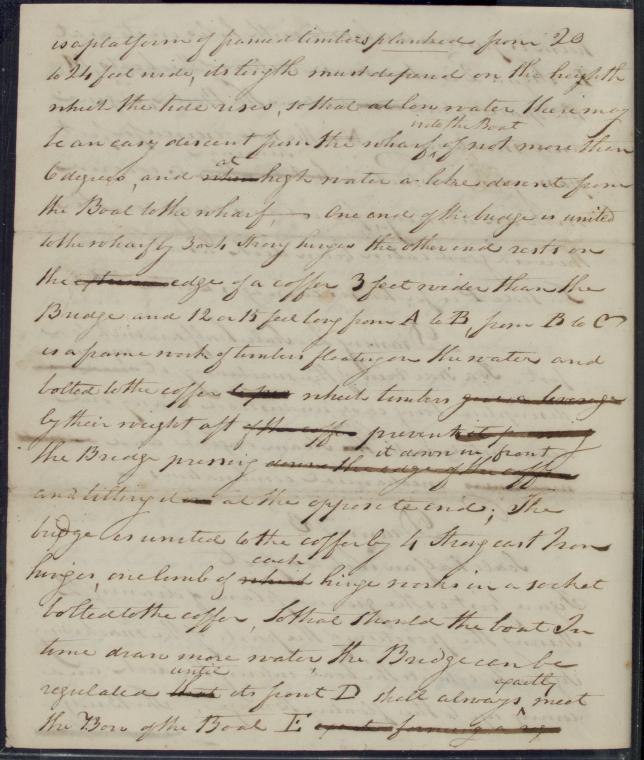 is a platform of framed timbers planked from 20
to 24 feet wide, its length must depend on the heighth
which the tide rises, so that at low water there may
into the Boat
be an easy descent from the wharf, of not more than
at
6 degrees, and when high water a like descent from
the Boat to the wharf. One end of the bridge is united
to the wharf by 3 or 4 strong hinges the other end rests on
the edge of a coffer 3 feet wider than the
Bridge and 12 or 15 feet long from A to B, from B to C
is a frame work of timbers floating on the water and
bolted to the coffer which timbers give a leverage
by their weight aft of the coffer prevent it pressing
it down in front
the Bridge pressing down the edge of the coffer
and lifting it at the opposite end; The
bridge is united to the coffer by 4 strong cast Iron
each
hinges, one limb of which hinge works in a socket
bolted to the coffer, So that should the boat In
time draw more water, the Bridge can be
until exactly
regulated that its front D shall always meet
the Bow of the Boat E